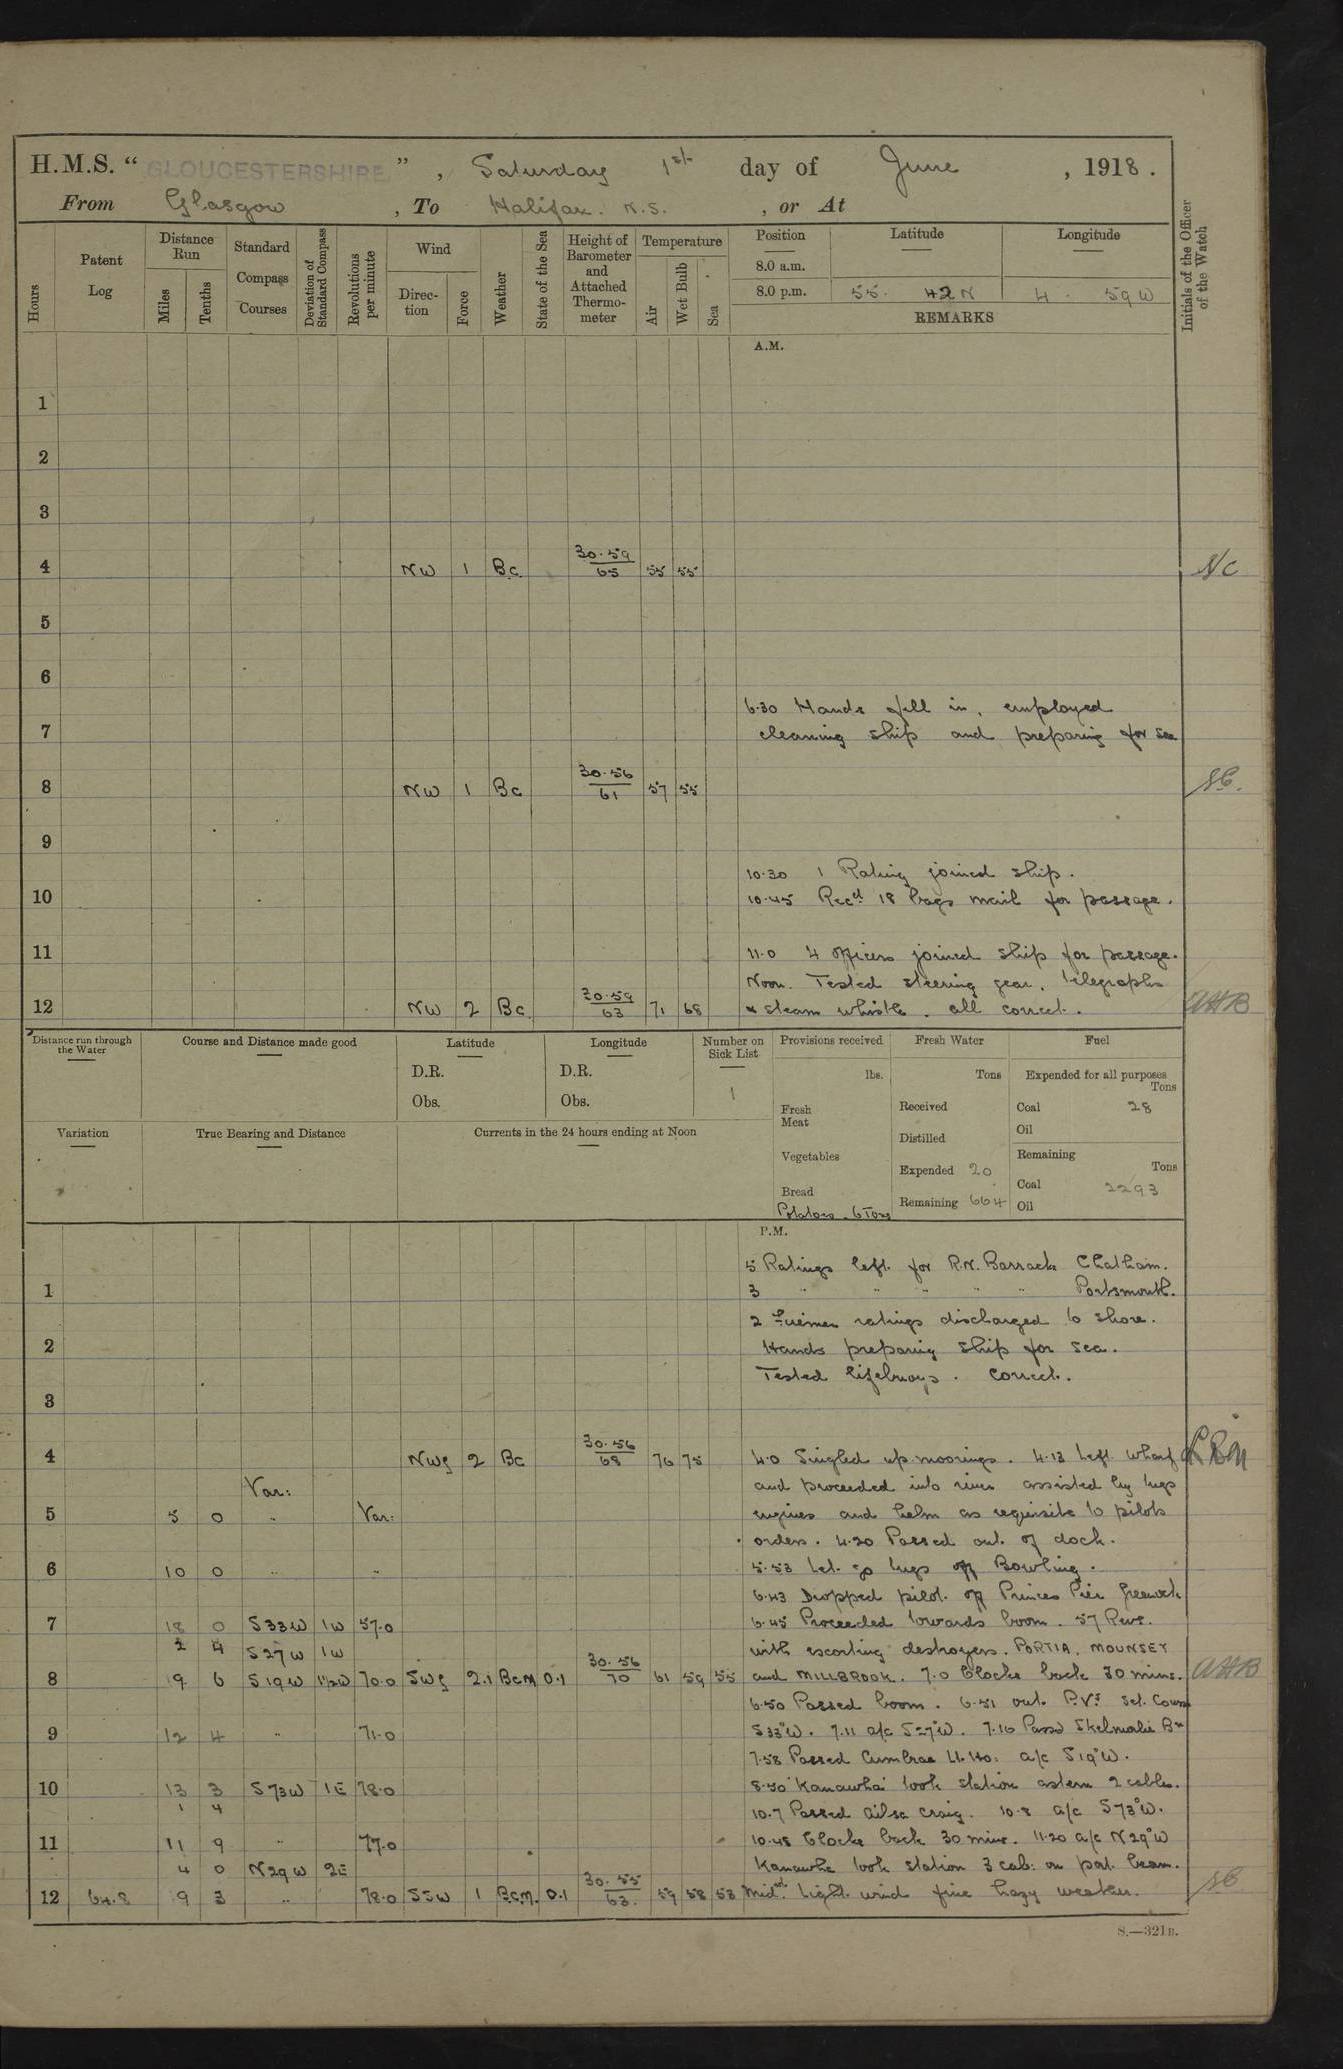 H.M.S. “ GLOUCESTERSHIRE ” , Saturday 1st day of June , 1918 .
From Glasgow , To Halifax. N.S. , or At
Initials of the Officer of the Watch
Hours
Patent Log
Distance Run
Miles
Tenths
Standard Compass Courses
Deviation of Standard Compass
Revolutions per minute
Wind
Direc-tion
Force
Weather
State of the Sea
Height of Barometer and Attached Thermo-meter
Temperature
Air
Wet Bulb
Sea
Position Latitude Longitude
8.0 a.m.
8.0 p.m. 55. 42 N 4. 59 W
REMARKS
A.M.
1
2
3
4 NW 1 Bc. 30.59/65 55 55 NC
5
6
6.30 Hands fell in, employed
7 cleaning ship and preparing for sea
8 NW 1 Bc 30.56/61 57 55
9
10.30 1 Rating joined ship.
10 10.45 Recd 18 bags mail for passage.
11 11.0 4 officers joined ship for passage.
Noon. Tested steering gear, telegraphs
12 NW 2 Bc. 30.59/63 71 68 & steam whistle. all correct. AHB
Distance run through the Water
Course and Distance made good
Latitude
D.R.
Obs.
Longitude
D.R.
Obs.
Number on Sick List
1
Variation
True Bearing and Distance
Currents in the 24 hours ending at Noon
Provisions received
lbs.
Fresh Meat
Vegetables
Bread
Potatoes. 6 Tons
Fresh Water
Tons
Received
Distilled
Expended 20
Remaining 664
Fuel
Expended for all purposes
Tons
Coal 28
Oil
Remaining
Tons
Coal 2293
Oil
P.M.
5 Ratings left for R.N. Barracks Chatham.
1 3 " " " " " Portsmouth.
2 Firemen ratings discharged to shore.
2 Hands preparing ship for sea.
Tested lifebuoys. Correct.
3
4 NWly 2 Bc 30.56/68 76 75 4.0 Singled up moorings. 4.13 Left wharf
Var: and proceeded into river assisted by tugs
5 5 0 " Var: engines and helm as requisite to pilots
orders. 4.20 Passed out of dock.
6 10 0 " " 5.53 Let go tugs off Bowling.
6.43 Dropped pilot off Princes Pier Greenock
7 18 0 S33W 1W 57.0 6.45 Proceeded towards boom. 57 Revs.
2 4 S27W 1W with escorting destroyers. PORTIA, MOUNSEY
8 9 6 S19W 1½W 70.0 SWly 2.1 BcM 0.1 30.56/70 61 59 55 and MILLBROOK. 7.0 Clocks back 30 mins. AHB
6.50 Passed boom. 6.51 out P.Vs Set Course
9 12 4 " 71.0 S33°W. 7.11 a/c S27°W. 7.16 Passd Skelmorlie By
7.58 Passed Cumbrae Lt. Ho: a/c S19°W.
10 13 3 S73W 1E 78.0 8.50 'Kanawha' took station astern 2 cables.
1 4 10.7 Passed Ailsa Craig. 10.8 a/c S73°W.
11 11 9 " 77.0 10.48 Clocks back 30 mins. 11.20 a/c N29°W
4 0 N29W 2E Kanawha took station 3 cab: on port beam.
12 64.8 9 3 " 78.0 SSW 1 B.c.M. 0.1 30.55/63. 59 58 53 Midnt. Light wind fine hazy weather.
S.—321B.